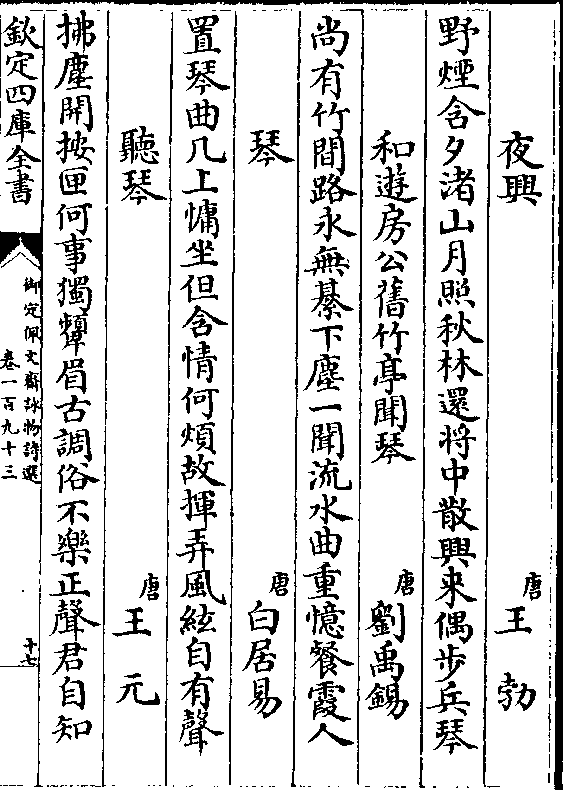 夜興 唐 王勃
野煙含夕渚山月照秋林還將中散興来偶步兵琴
和遊房公舊竹亭聞琴 唐 劉禹錫
尚有竹間路永無綦下塵一聞流水曲重憶餐霞人
琴 唐 白居易
置琴曲几上慵坐但含情何煩故揮弄風絃自有聲
聽琴 唐 王元
拂塵開按匣何事獨顰眉古調俗不樂正聲君自知
欽定四庫全書 御定佩文齋詠物詩選 卷一百九十三 十七